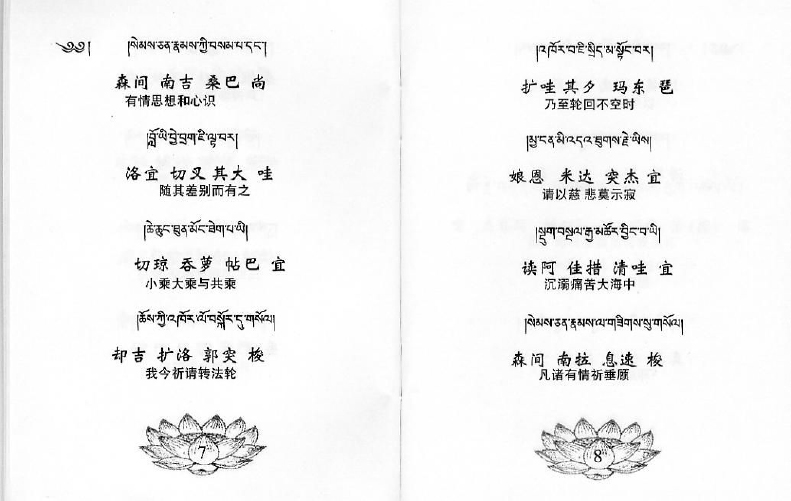 ༄༅། །སེམས་ཅན་རྣམས་ཀྱི་བསམ་པ་དང་།
森间 南吉 桑巴 尚
有情思想和心识
།བློ་ཡི་བྱེ་བྲག་ཇི་ལྟ་བར།
洛宜 切叉 其大 哇
随其差别而有之
།ཆེ་ཆུང་ཐུན་མོང་ཐེག་པ་ཡི།
切琼 吞萝 帖巴 宜
小乘大乘与共乘
།ཆོས་ཀྱི་འཁོར་ལོ་བསྐོར་དུ་གསོལ།
却吉 扩洛 郭突 梭
我今祈请转法轮
7
།འཁོར་བ་ཇི་སྲིད་མ་སྟོང་བར།
扩哇 其夕 玛东 琶
乃至轮回不空时
།མྱ་ངན་མི་འདའ་ཐུགས་རྗེ་ཡིས།
娘恩 米达 突杰 宜
请以慈 悲莫示寂
།སྡུག་བསྔལ་རྒྱ་མཚོར་བྱིང་བ་ཡི།
读阿 佳措 清哇 宜
沉溺痛苦大海中
།སེམས་ཅན་རྣམས་ལ་གཟིགས་སུ་གསོལ།
森间 南拉 息速 梭
凡诸有情祈垂顾
8